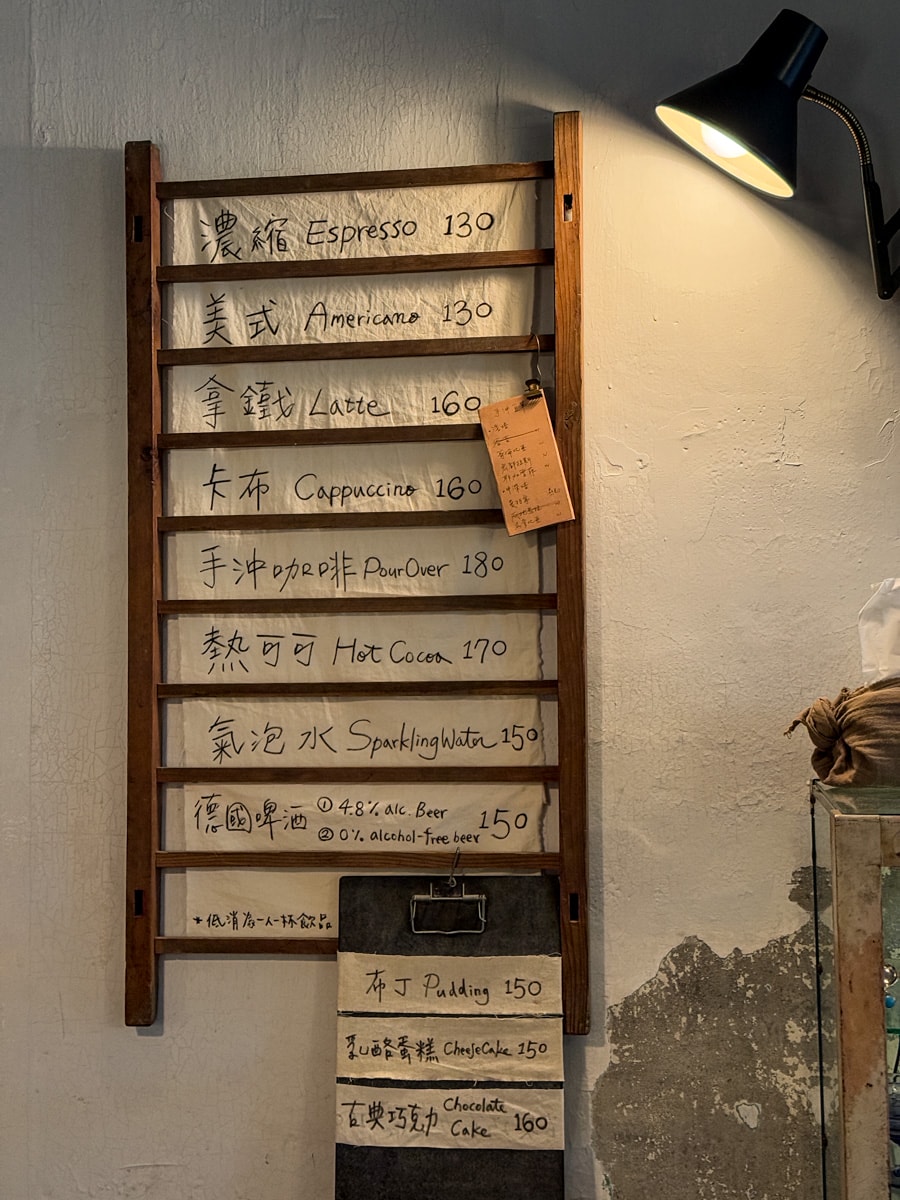 濃縮 Espresso 130
美式 Americano 130
拿鐵 Latte 160
卡布 Cappuccino 160
手沖咖啡 PourOver 180
熱可可 Hot Cocoa 170
氣泡水 Sparkling Water 150
德國啤酒 ① 4.8% alc. Beer 150
② 0% alcohol-free beer
+低消為一人一杯飲品
布丁 Pudding 150
乳酪蛋糕 CheeseCake 150
古典巧克力 Chocolate Cake 160